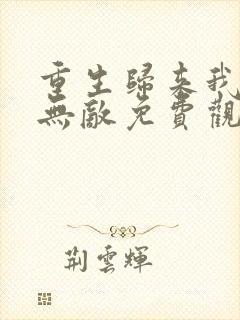 重生歸來我
無敵免費觀
荊雲輝